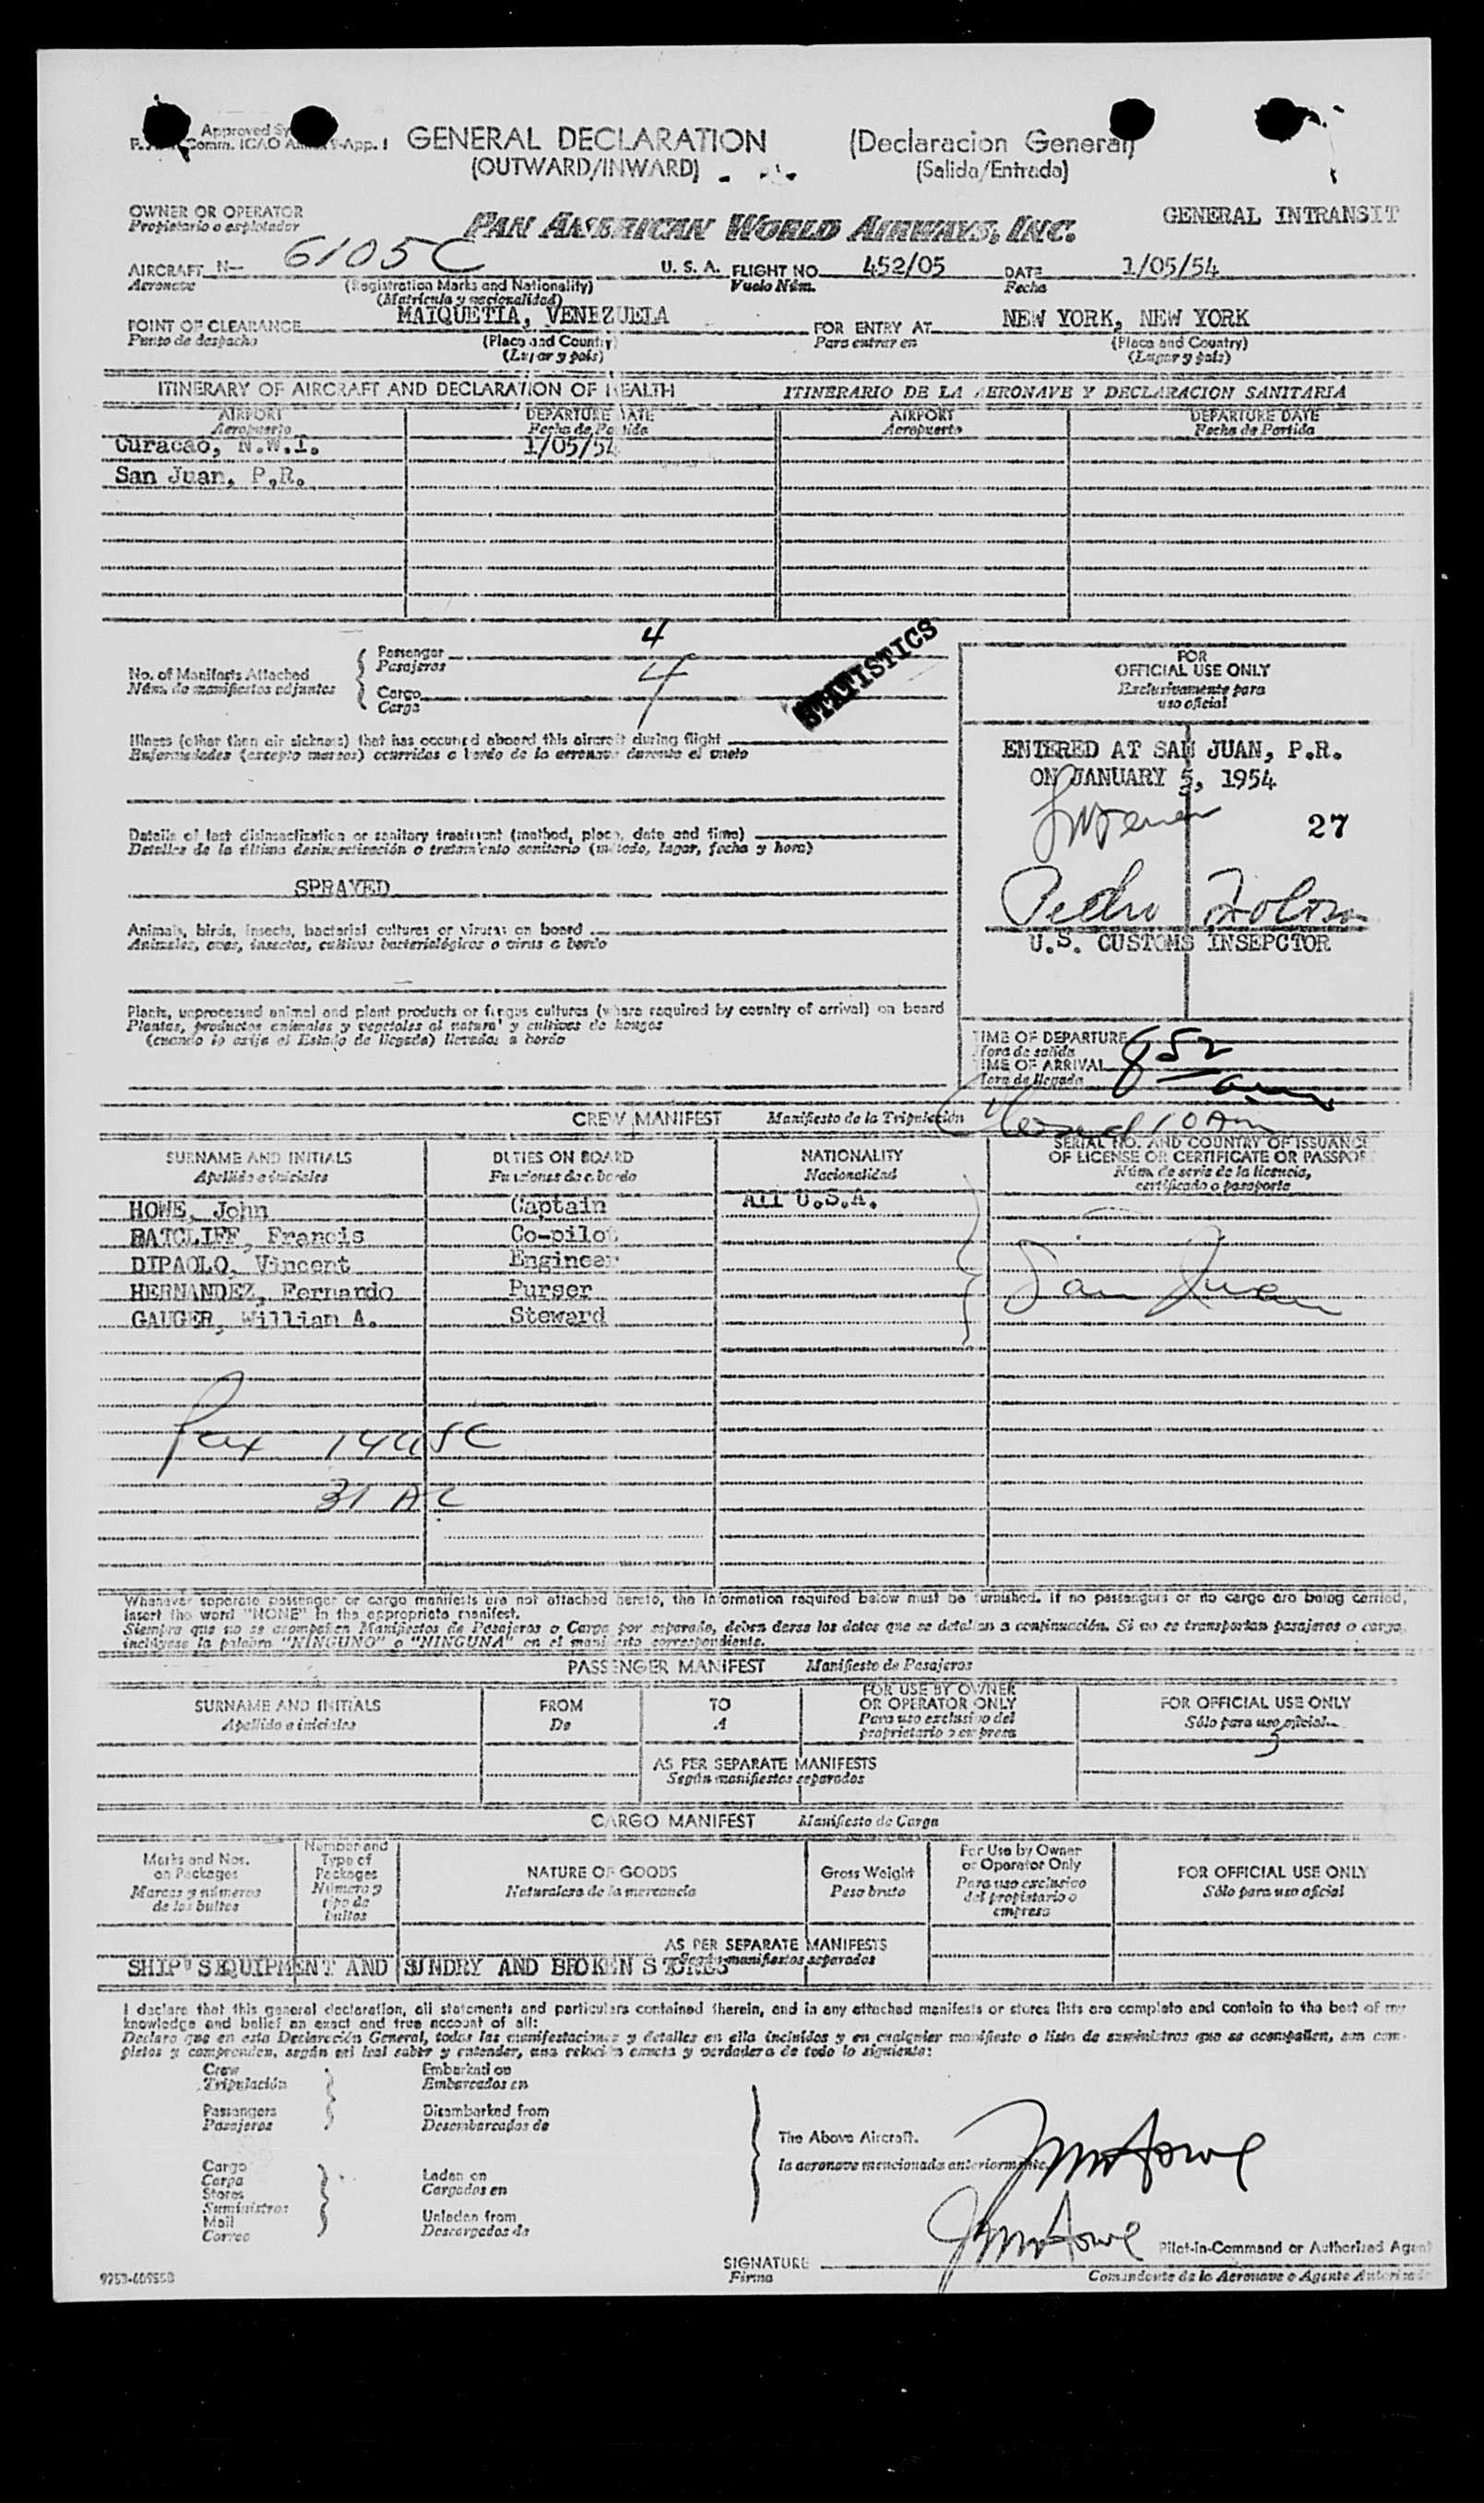 Approved By
Comm. ICAO Annex 9-App. 1
GENERAL DECLARATION (Declaracion General)
(OUTWARD/INWARD) (Salida/Entrada)
OWNER OR OPERATOR
Propietario o explotador
PAN AMERICAN WORLD AIRWAYS, INC.
GENERAL INTRANSIT
AIRCRAFT N- 6105C U. S. A. FLIGHT NO. 452/05 DATE 1/05/54
Aeronave (Registration Marks and Nationality) Vuelo Núm. Fecha
(Matricula y nacionalidad)
POINT OF CLEARANCE MAIQUETIA, VENEZUELA FOR ENTRY AT NEW YORK, NEW YORK
Punto de despacho (Place and Country) Para entrar en (Place and Country)
(Lugar y pais) (Lugar y pais)
ITINERARY OF AIRCRAFT AND DECLARATION OF HEALTH ITINERARIO DE LA AERONAVE Y DECLARACION SANITARIA
AIRPORT DEPARTURE DATE AIRPORT DEPARTURE DATE
Aeropuerto Fecha de Partida Aeropuerto Fecha de Partida
Curacao, N.W.I. 1/05/54
San Juan, P.R.
4
No. of Manifests Attached
Núm. de manifiestos adjuntos
Passenger
Pasajeros
4
Cargo
Carga
STATISTICS
FOR
OFFICIAL USE ONLY
Exclusivamente para
uso oficial
Illness (other than air sickness) that has occurred aboard this aircraft during flight
Enfermedades (excepto mareos) ocurridas a bordo de la aeronave durante el vuelo
ENTERED AT SAN JUAN, P.R.
ON JANUARY 5, 1954
27
Details of last disinsectization or sanitary treatment (method, place, date and time)
Detalles de la última desinsectización o tratamiento sanitario (método, lugar, fecha y hora)
SPRAYED
Pedro
U.S. CUSTOMS INSEPCTOR
Animals, birds, insects, bacterial cultures or viruses on board
Animales, aves, insectos, cultivos bacteriológicos o virus a bordo
Plants, unprocessed animal and plant products or fungus cultures (where required by country of arrival) on board
Plantas, productos animales y vegetales al natural y cultivos de hongos
(cuando lo exija el Estado de llegada) llevados a bordo
TIME OF DEPARTURE
Hora de salida
TIME OF ARRIVAL
Hora de llegada
852 am
10 Am
CREW MANIFEST Manifiesto de la Tripulación
SURNAME AND INITIALS DUTIES ON BOARD NATIONALITY SERIAL NO. AND COUNTRY OF ISSUANCE
OF LICENSE OR CERTIFICATE OR PASSPORT
Apellido e iniciales Funciones de a bordo Nacionalidad Núm. de serie de la licencia,
certificado o pasaporte
HOWE, John Captain All U.S.A.
RATCLIFF, Francis Co-pilot
DIPAOLO, Vincent Engineer
HERNANDEZ, Fernando Purser San Juan
GAUGER, William A. Steward
Pax
31 AC
Whenever separate passenger or cargo manifests are not attached hereto, the information required below must be furnished. If no passengers or no cargo are being carried,
insert the word "NONE" in the appropriate manifest.
Siempre que no se acompañen Manifiestos de Pasajeros o Carga por separado, deben darse los datos que se detallan a continuación. Si no se transportan pasajeros o carga,
inclúyase la palabra "NINGUNO" o "NINGUNA" en el manifiesto correspondiente.
PASSENGER MANIFEST Manifiesto de Pasajeros
SURNAME AND INITIALS FROM TO FOR USE BY OWNER
OR OPERATOR ONLY FOR OFFICIAL USE ONLY
Apellido e iniciales De A Para uso exclusivo del
propietario o empresa Sólo para uso oficial
AS PER SEPARATE MANIFESTS
Según manifiestos separados
CARGO MANIFEST Manifiesto de Carga
Marks and Nos.
on Packages
Marcas y números
de los bultos
Number and
Type of
Packages
Número y
tipo de
bultos
NATURE OF GOODS
Naturaleza de la mercancía
Gross Weight
Peso bruto
For Use by Owner
or Operator Only
Para uso exclusivo
del propietario o
empresa
FOR OFFICIAL USE ONLY
Sólo para uso oficial
AS PER SEPARATE MANIFESTS
Según manifiestos separados
SHIP'S EQUIPMENT AND SUNDRY AND BROKEN STORES
I declare that this general declaration, all statements and particulars contained therein, and in any attached manifests or stores lists are complete and contain to the best of my
knowledge and belief an exact and true account of all:
Declaro que en esta Declaración General, todas las manifestaciones y detalles en ella incluidos y en cualquier manifiesto o lista de suministros que se acompañen, son com-
pletos y comprenden, según mi leal saber y entender, una relación exacta y verdadera de todo lo siguiente:
Crew
Tripulación
Embarked on
Embarcados en
Passengers
Pasajeros
Disembarked from
Desembarcados de
The Above Aircraft.
la aeronave mencionada anteriormente.
Cargo
Carga
Stores
Suministros
Mail
Correo
Laden on
Cargados en
Unladen from
Descargados de
SIGNATURE
Firma
Pilot-in-Command or Authorized Agent
Comandante de la Aeronave o Agente Autorizado